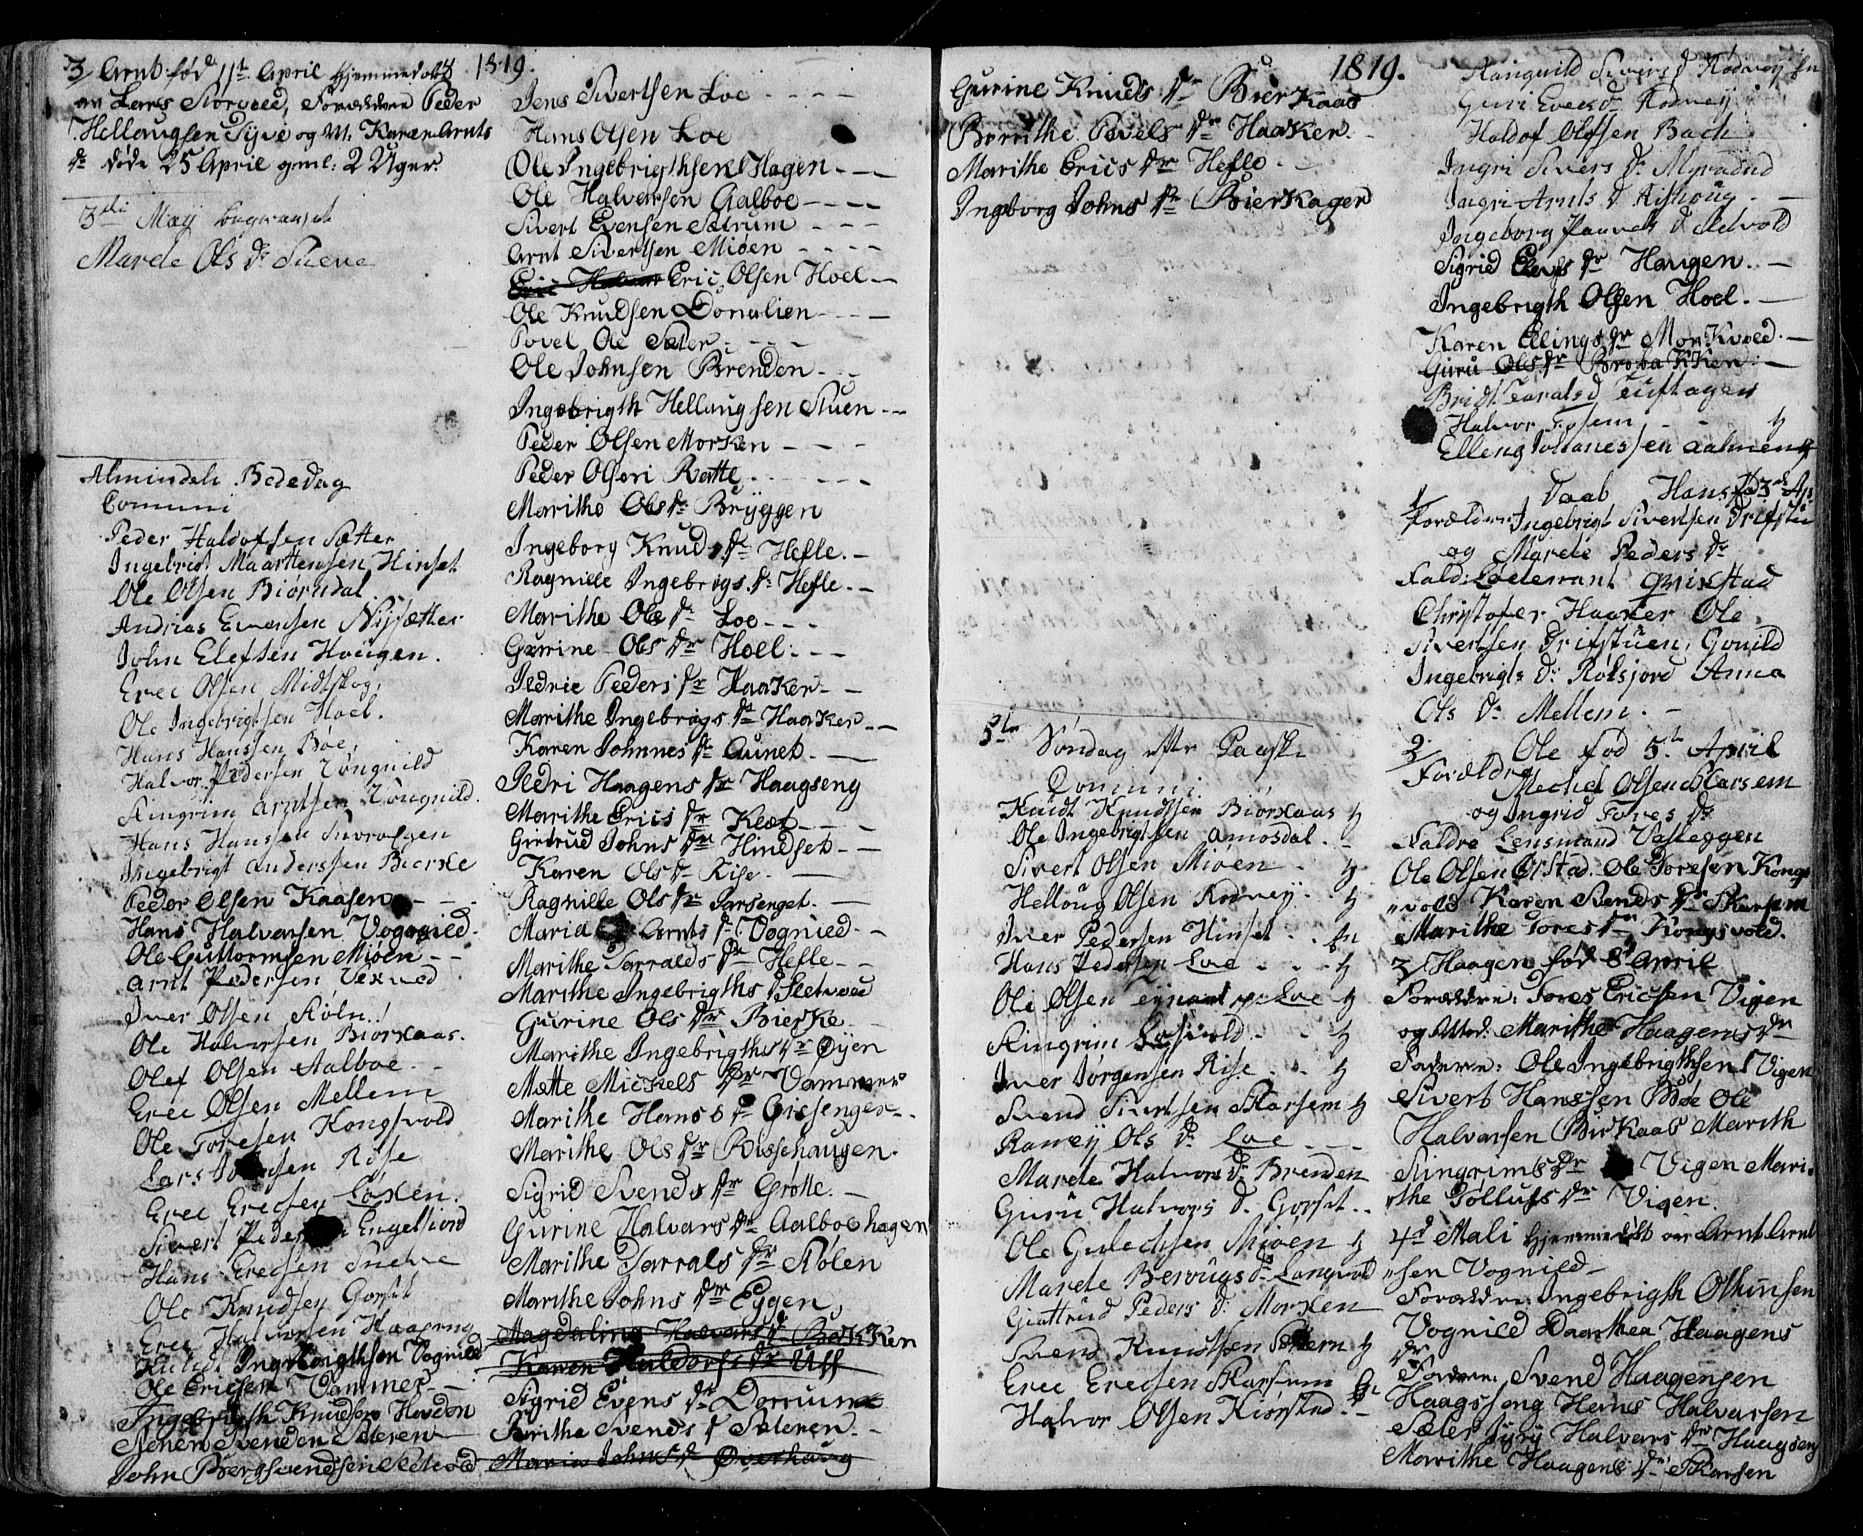 3/ Arnt fød 11te April Hjemmedøbt
av Lars Storveed, Forældre Peder
Hellaugsen Tyve og M. Karen Arnts
dr døde 25 April gml: 2 Uger.
3die Maij
Marele Ols dr Stuene
Almindeli Bededag
Comuni
Peder Haldofsen Sætter
Ingebrigt Maartensen Hinset
Ole Olsen Biørndal
Andrias Evensen Nysætter
John Elefsen Hougen.
Erec Olsen Midtskog.
Ole Ingebrigtsen Hoel.
Hans Hanssen Bøe.
Halvor Pedersen Vongnild
Ringrim Arntsen Vongnild.
Hans Hanssen
Ingebrigt Anderssen Bierke
Peder Olsen Kaasen
Hans Halvarsen Vognied.
Ole Guttormsen Miøen
Arnt Pedersen Vexved
Iver Olsen Røln.
Ole Halvorsen Biorkaas.
Olef Olsen Aalboe
Erec Olsen Mellem
Ole Toresen Kongsvold
Lars Rise
Erec Erecsen Løken.
Sivert Peder Engelsiord
Hans Erecsen Stuene
Ole Knudsen Gorset
Erec Halvorsen Haagseng
Knudt Ingebrigthsen Vognied
Ole Ericsen Vammer
Ingebrigth Knudsen Hevden
Svend Sæteren
John Bergsvendsen Sletvold
1819.
Jens Sivertsen Loe
Hans Olsen Loe
Ole Ingebrigthsen Hagen
Ole Halvarsen Aalboe
Sivert Evensen Sætrum
Arnt Sivertsen Miøen
Eric Halvar Eric Olsen Hoel
Ole Knudsen Dorralien
Povel Ole Sæter
Ole Johnsen Brenden
Ingebrigth Hellaugsen Stuen
Peder Olsen Morken
Peder Olsen Rætte
Marithe Ols dr Brÿggen
Ingeborg Knuds dr Hefle.
Ragnille Ingebrigs dr Hefle.
Marithe Ols dr Loe
Gurine Ols dr Hoel.
Sedrie Peders dr Haaker
Marithe Ingebrigs dr Haaker
Karen Johnnes dr Aunet.
Sedri Haagens dr Haagseng
Marithe Erics dr Klæt
Giertrud Johns dr Hindset
Karen Ols dr Rise.
Ragnille Ols dr Parsenget.
Maria Arnts dr Vognied.
Marithe Tarralds dr Hefle
Marithe Ingebrigths dr Sletvold
Gurine Ols dr Bierke
Marithe Ingebrigths dr Øyen
Mætte Mickels dr Vammer
Marithe Hans dr Gissenger
Marithe Ols dr Rissehaugen.
Sigrid Svends dr Grøtte.
Gurine Halvars dr Aalboehagen
Marithe Tarrals dr Røløen
Marithe Johns dr Eggen,
Magdalina Halvars dr Bækken
Karen Haldors dr Uff
Sigrid Evens dr Dorrum
Birithe Svends dr Sæteren.
Maria Johns dr Overhaug
1819.
Gurine Knuds dr Bierkaas
Berrithe Povels dr Haaker.
Marithe Erics dr Hefle
Ingborg Johns dr Bierkager
3te Søndag efter Paaske
Comuni
Knudt Knudssen Biørkaas
Ole Ingebrigtsen Amosdal.
Sivert Olsen Miøen
Helloug Olsen Rodvey.
Iver Pedersen Hinset
Hans Pedersen Loe
Ole Olsen Loe
Ringrim
Iver Jørgensen Rise
Svend Sivertsen Skarsem
Raney Ols dr Loe
Marele Halvors dr Brenden
Guru Halvors dr Gorset
Ole Gulechsen Miøen
Marele Berougs dr Langvold
Giertrud Peders dr Morken
Svend Knudtsen
Erec Erecsen Skarsem
Halvor Olsen Kiørstad.
Ranguild Sivers dr Rodvey
Guri Evens dr Rodvey
Haldof Olefsen Bach
Ingri Sivers dr
Ingri Arnts dr Rishoug
Ingeborg Paavels dr
Sigrid Elefs dr Haugen.
Ingebrigth Olsen Hoel.
Karen Ellings dr Morkved.
Guru Ols dr Brobakken.
Bridt Taralsd Tuftagen
Halvor
Elleng Johanessen Aalmen
1/ Daab Hans fød 3de Ap.
Forældre Ingebrigt Sivertsen Drifstu
og Marete Peders dr
Fald: Løitenant Qvikstad
Christofer Haaker Ole
Sivertsen Drifstuen, Gonild
Ingebrigts dr Rølsjord Anna
Ols dr Mellem.
2/ Ole fød 5te April
Forældre Mechel Olsen Skarsem
og Ingrid Tores dr
Faldre Lensmand Vasleggen
Ole Olsen Ole Toresen Kongs
vold Karen Svends dr Skarsem
Marithe Tores dr Kongsvold.
3/ Haagen fød 8d April
Forældre: Tores Ericsen Vigen
og Mod: Marithe Haagens dr
Faderne: Ole Ingebrigthsen Vigen
Sivert Hanssen Bøe Ole
Halvarsen Birkaas Marith
Ringrims dr Vigen Mari
the Tollufs dr Vigen.
4d Mali Hjemmedøbt av Arnt Arnt
sen Vognied
Forældre Ingebrigth Olhunsen
Vognied Daarthea Haagens
dr
Faderne: Svend Haagensen
Haagsseng Hans Halvarsen
Sæter Halvars dr Haagseng
Marithe Haagens dr Skarsen